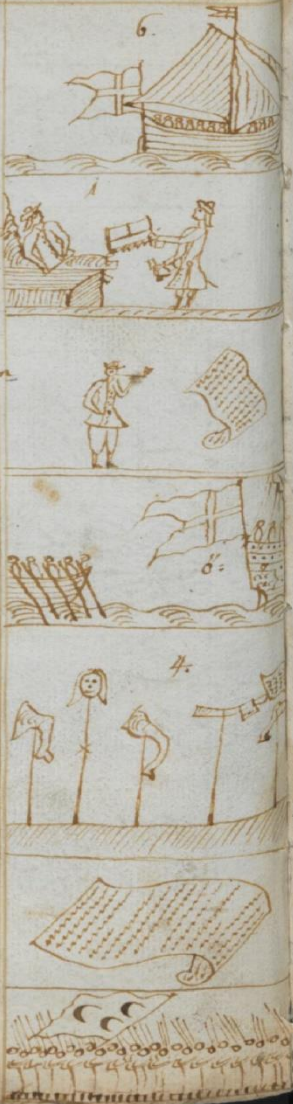 6.
1
8
4.